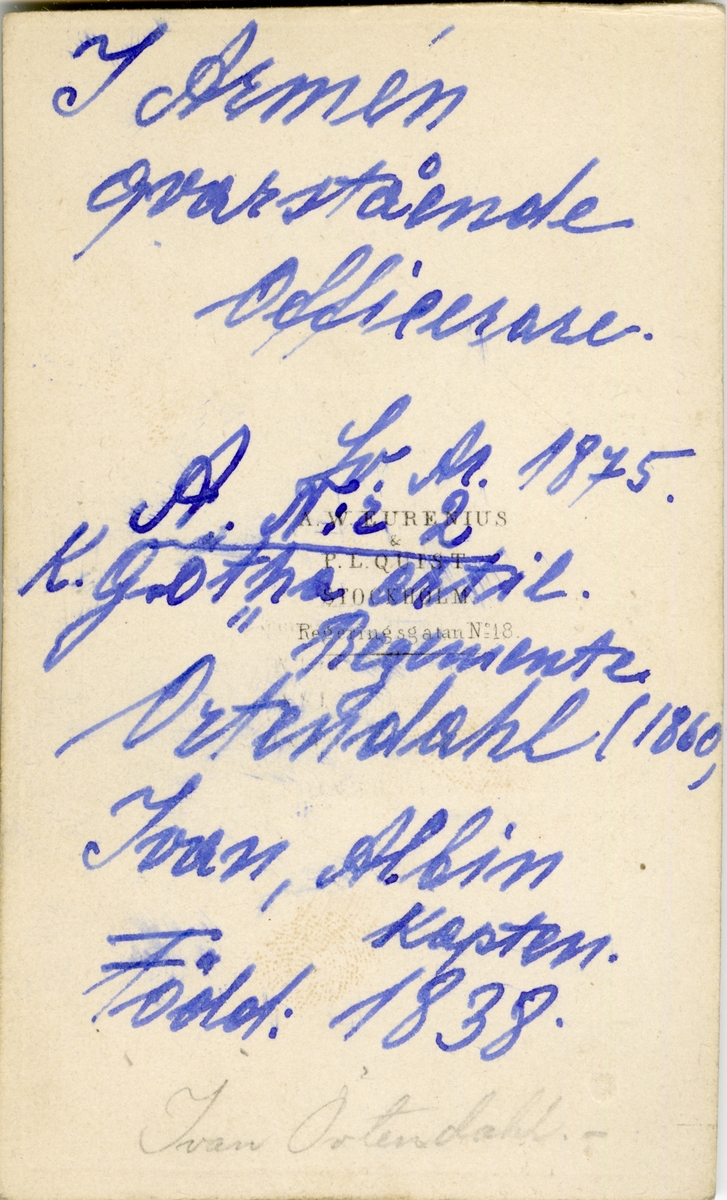 I Armén
qvarstående
Officerare.
Sv. Ar. 1875.
A. N:r 2
A. W. EURENIUS
&
P. L. QUIST
STOCKHOLM.
Regeringsgatan No 18.
K. Götha artil.
" Regemente
Ortendahl (1860)
Ivan, Albin
Kapten.
Född: 1838.
Ivan Ortendahl. -